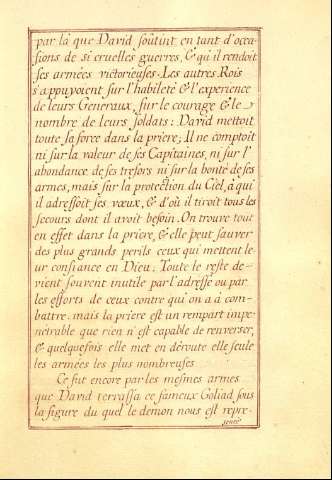 par là que David soûtint en tant d'occa-
sions de si cruelles guerres, & qu'il rendoit
ses armées victorieuses. Les autres Rois
s'appuyoient sur l'habileté & l'experience
de leurs Generaux, sur le courage & le
nombre de leurs soldats: David mettoit
toute sa force dans la priere; Il ne comptoit
ni sur la valeur de ses Capitaines, ni sur l'
abondance de ses tresors ni sur la bonté de ses
armes, mais sur la protection du Ciel, à qui
il adressoit ses vœux, & d'où il tiroit tous les
secours dont il avoit besoin. On trouve tout
en effet dans la priere, & elle peut sauver
des plus grands perils ceux qui mettent le
ur confiance en Dieu; Toute le reste de-
vient souvent inutile par l'adresse ou par
les efforts de ceux contre qui on a à com-
battre. mais la priere est un rempart impe-
netrable que rien n'est capable de renverser,
& quelquefois elle met en déroute elle seule
les armées les plus nombreuses.
Ce fut encore par les mesmes armes
que David terrassa ce fameux Goliad sous
la figure du quel le demon nous est repre-
senté